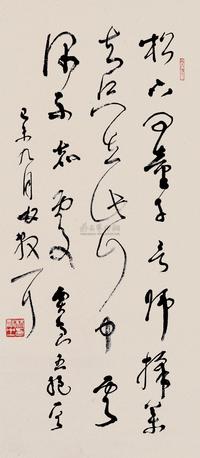 松下問童子言師採藥
去只在此山中雲
深不知處 賈島五絕
己未九月 散耳